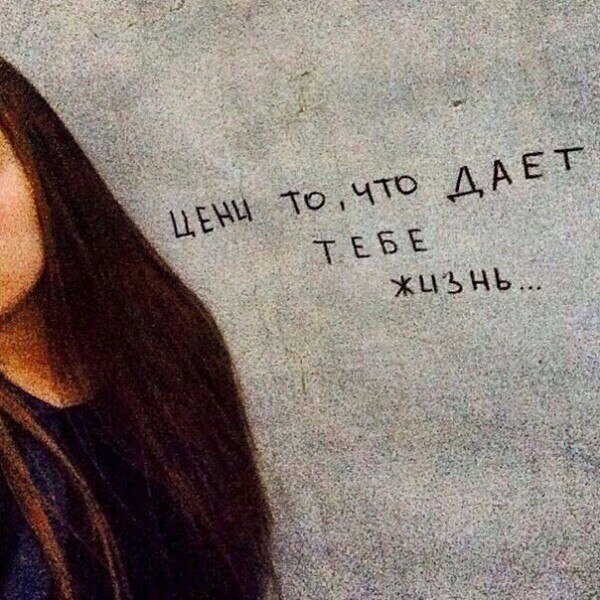 ЦЕНИ ТО, ЧТО ДАЕТ
ТЕБЕ
ЖИЗНЬ...